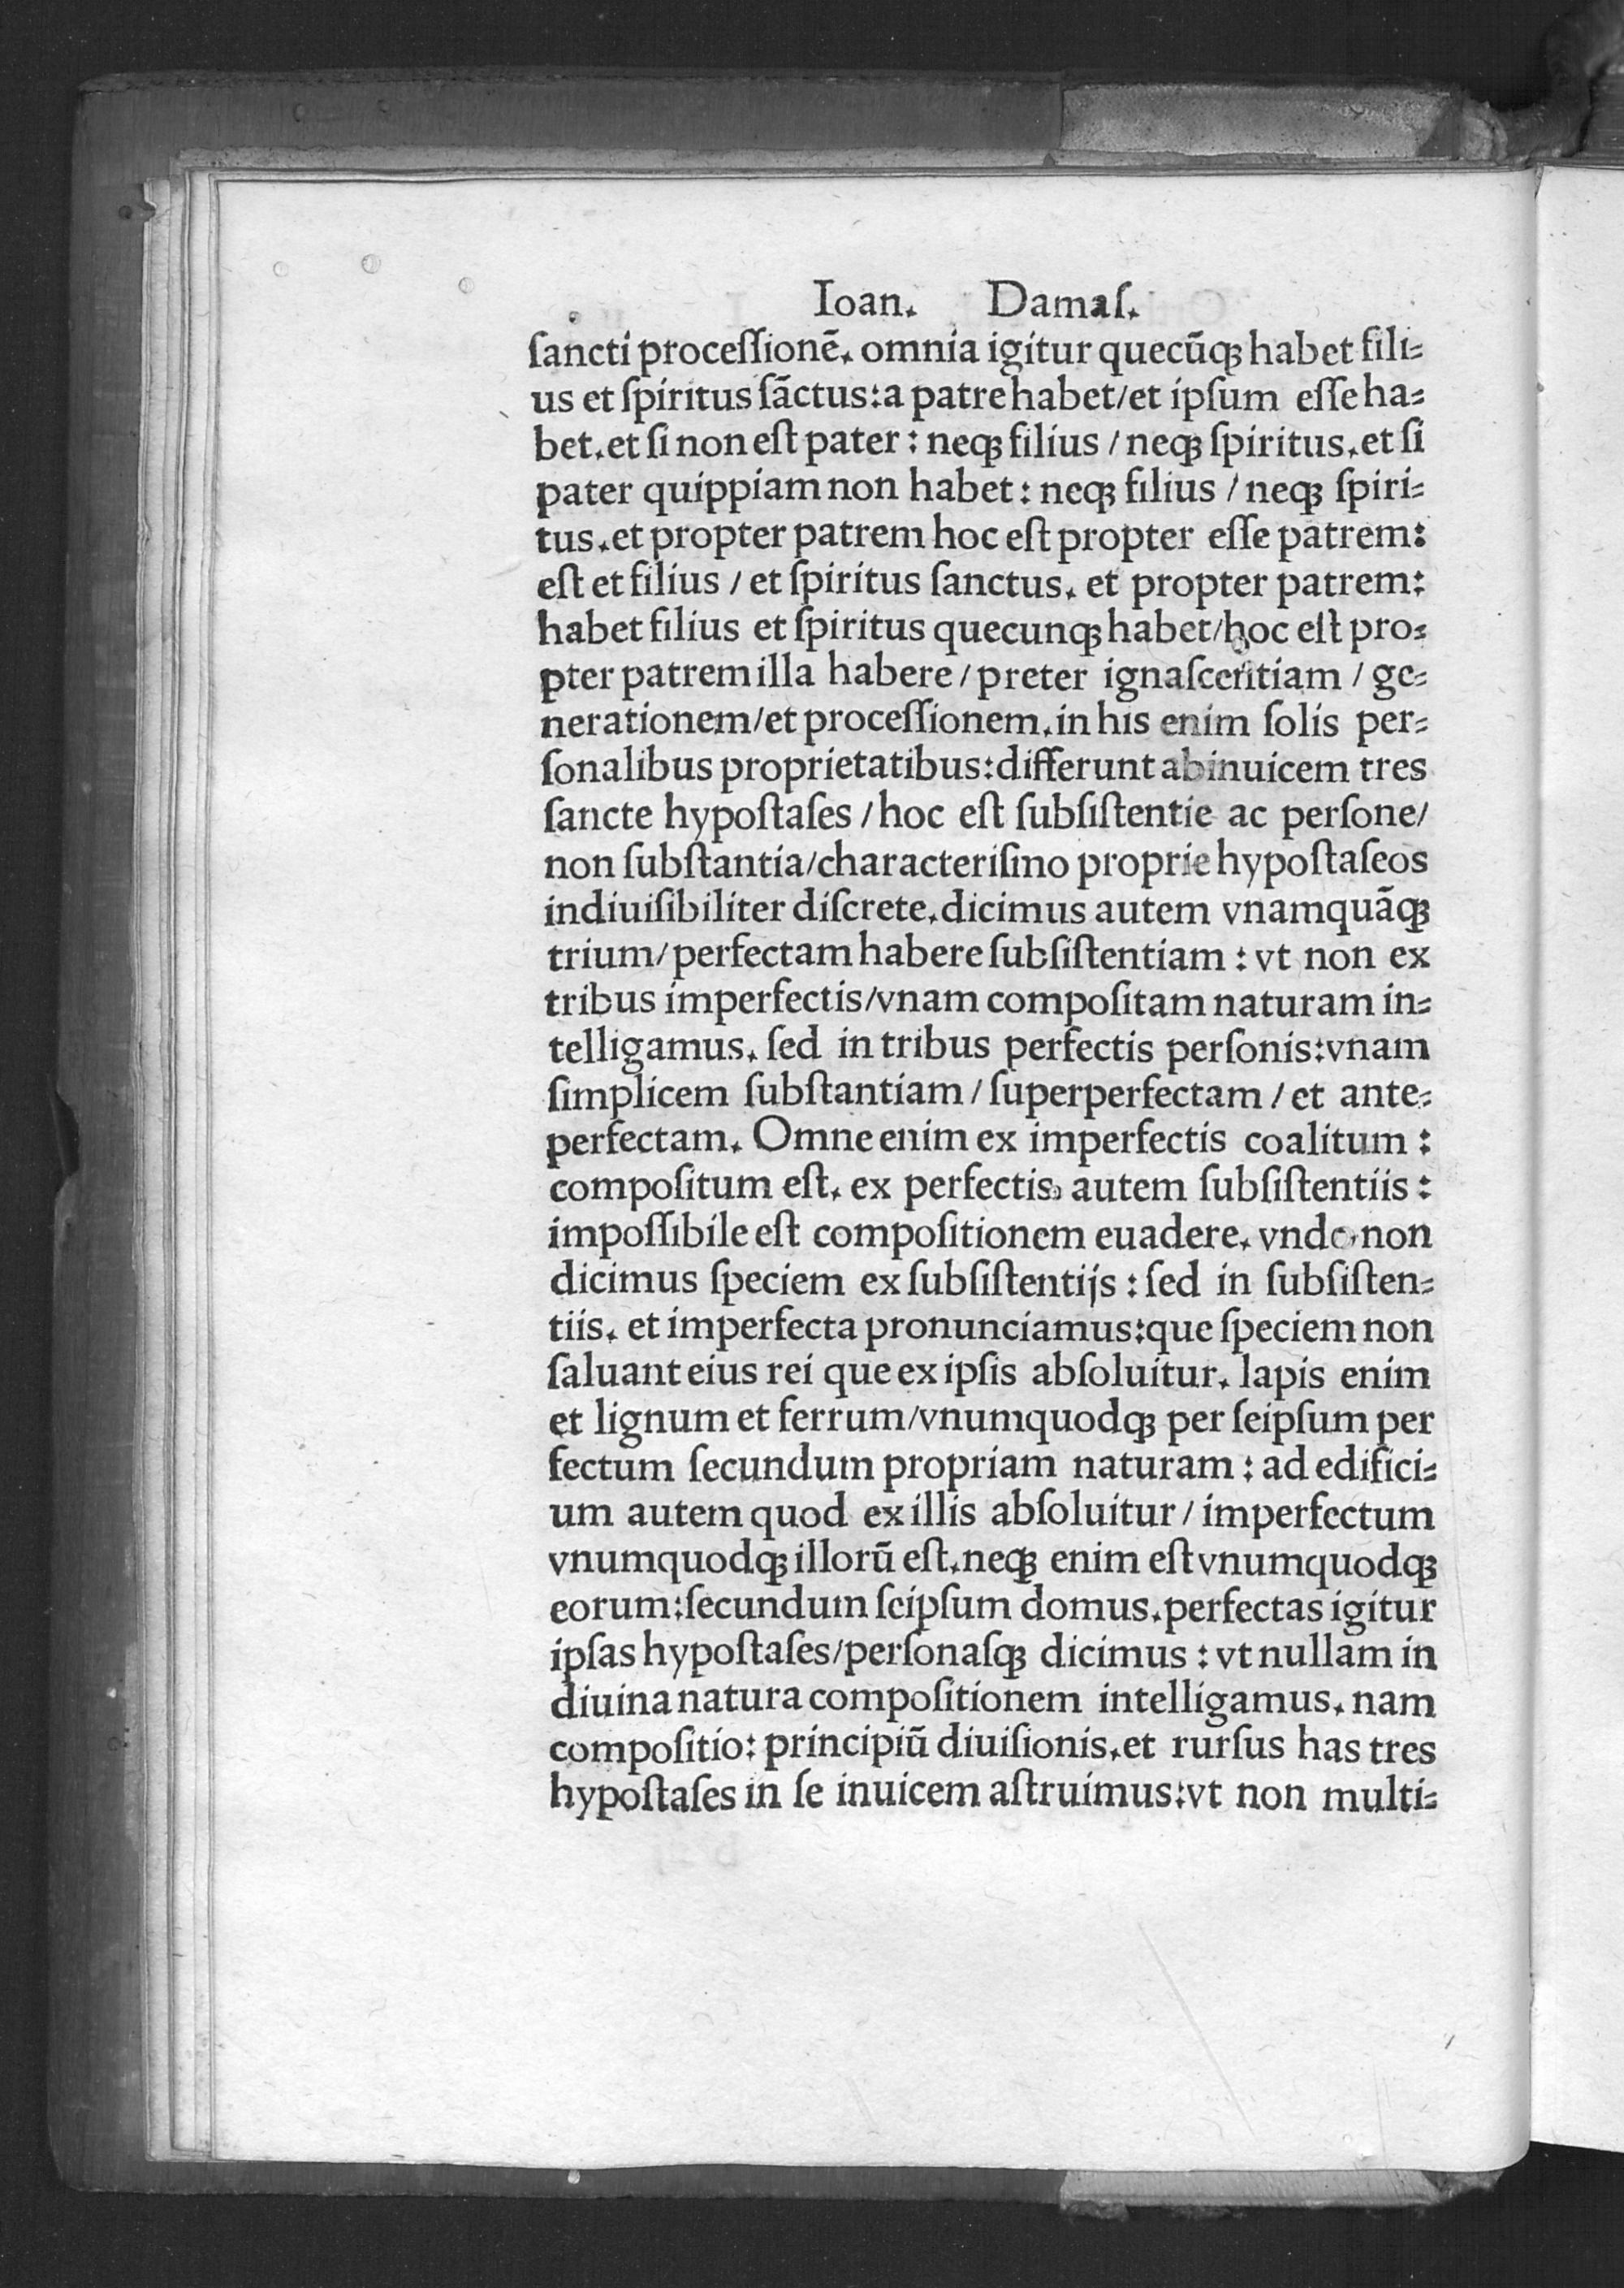 Ioan. Damaſ.
ſancti proceſſionē. omnia igitur quecūqꝫ habet fili⸗
us et ſpiritus ſāctus:a patre habet/et ipſum eſſe ha⸗
bet.et ſi non eſt pater : neqꝫ filius / neqꝫ ſpiritus.et ſi
pater quippiam non habet : neqꝫ filius / neqꝫ ſpiri⸗
tus.et propter patrem hoc eſt propter eſſe patrem:
eſt et filius / et ſpiritus ſanctus. et propter patrem:
habet filius et ſpiritus quecunqꝫ habet/hoc eſt pro⸗
pter patrem illa habere / preter ignaſcentiam / ge⸗
nerationem/et proceſſionem.in his enim ſolis per⸗
ſonalibus proprietatibus:differunt abinuicem tres
ſancte hypoſtaſes / hoc eſt ſubſiſtentie ac perſone/
non ſubſtantia/characteriſmo proprie hypoſtaſeos
indiuiſibiliter diſcrete.dicimus autem vnamquāqꝫ
trium/perfectam habere ſubſiſtentiam : vt non ex
tribus imperfectis/vnam compoſitam naturam in⸗
telligamus. ſed in tribus perfectis perſonis:vnam
ſimplicem ſubſtantiam / ſuperperfectam / et ante⸗
perfectam. Omne enim ex imperfectis coalitum :
compoſitum eſt. ex perfectis autem ſubſiſtentiis :
impoſſibile eſt compoſitionem euadere. vnde non
dicimus ſpeciem ex ſubſiſtentijs : ſed in ſubſiſten⸗
tiis. et imperfecta pronunciamus:que ſpeciem non
ſaluant eius rei que ex ipſis abſoluitur. lapis enim
et lignum et ferrum/vnumquodqꝫ per ſeipſum per
fectum ſecundum propriam naturam : ad edifici⸗
um autem quod ex illis abſoluitur / imperfectum
vnumquodqꝫ illorū eſt.neqꝫ enim eſt vnumquodqꝫ
eorum:ſecundum ſeipſum domus.perfectas igitur
ipſas hypoſtaſes/perſonaſqꝫ dicimus : vt nullam in
diuina natura compoſitionem intelligamus. nam
compoſitio: principiū diuiſionis.et rurſus has tres
hypoſtaſes in ſe inuicem aſtruimus:vt non multi⸗